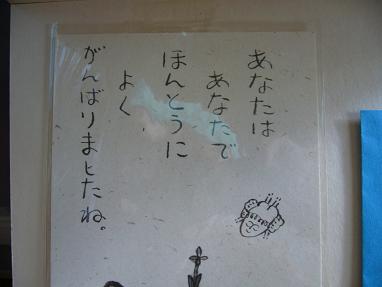 あなたは
あなたで
ほんとうに
よく
がんばりましたね。